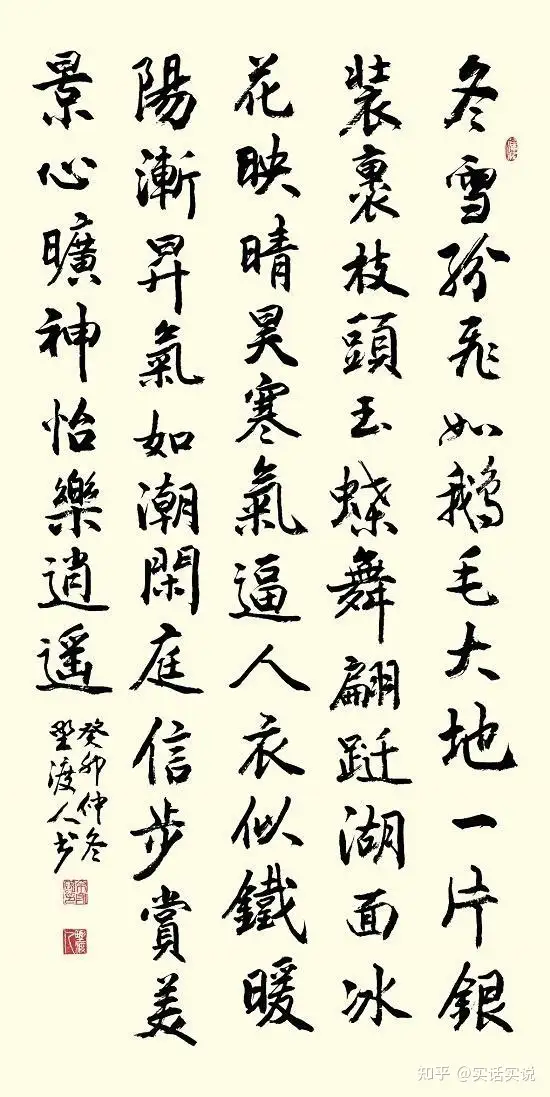 冬雪紛飛如鵝毛大地一片銀
裝裹枝頭玉蝶舞翩跹湖面冰
花映晴昊寒氣逼人衣似鐵暖
陽漸昇氣如潮閑庭信步賞美
景心曠神怡樂逍遥
癸卯仲冬
埜渡人书
知乎 @实话实说